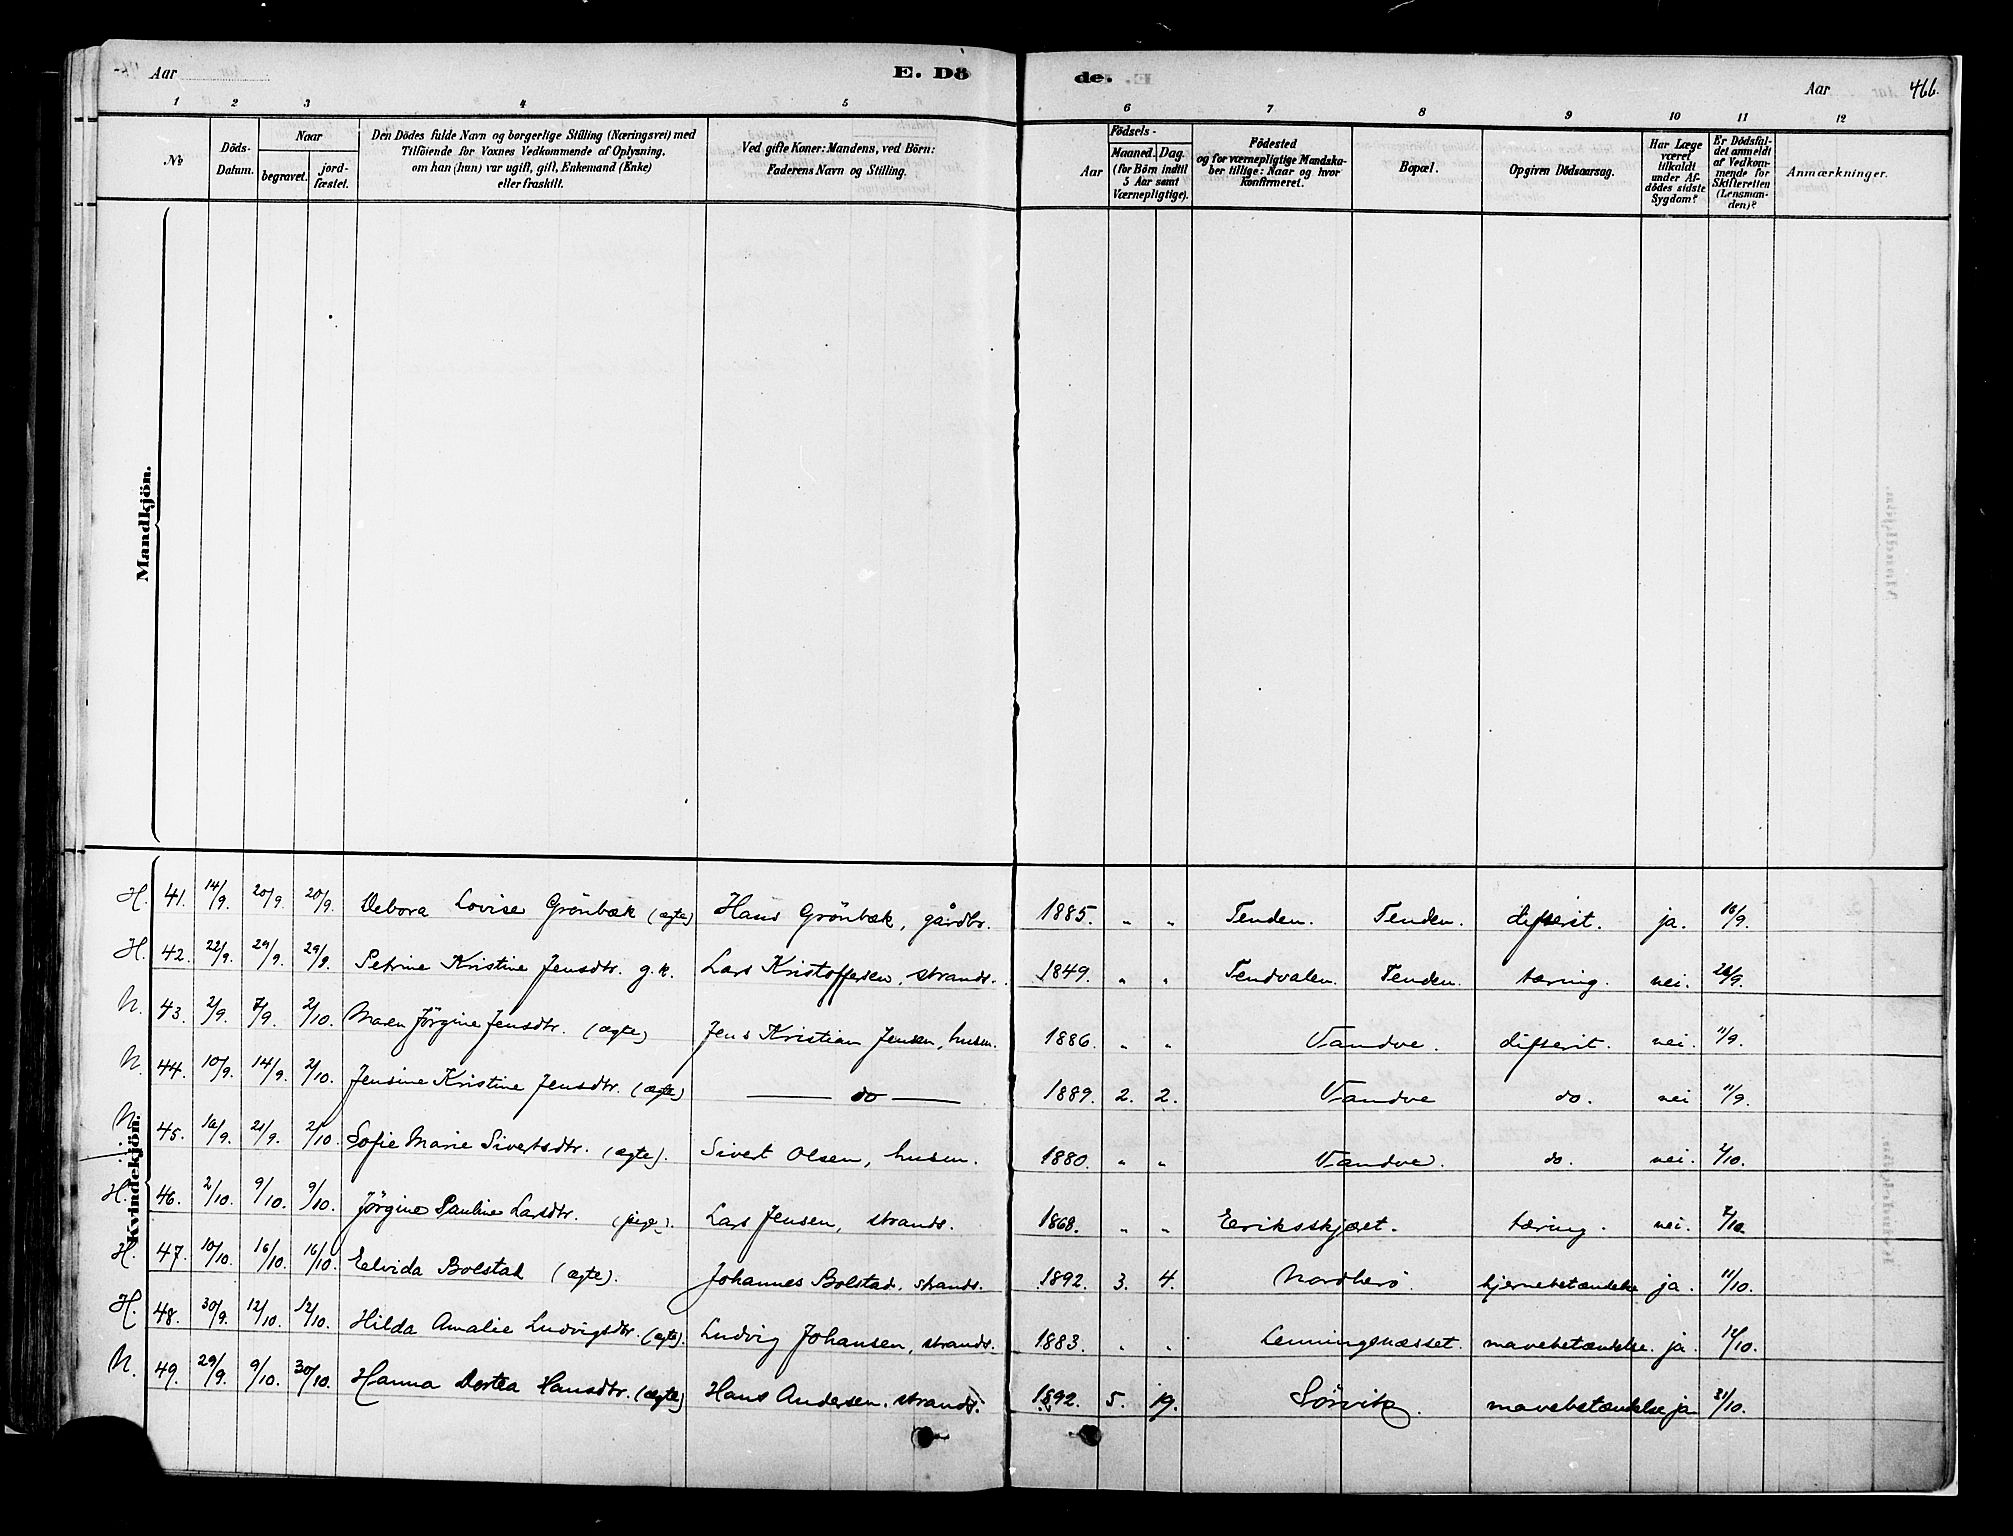 Aar E. Dö de. Aar 466.
1 2 3 4 5 6 7 8 9 10 11 12
No
Döds-Datum.
Naar
begravet. jordfæstet.
Den Dödes fulde Navn og borgerlige Stilling (Næringsvei) med
Tilföiende for Voxnes Vedkommende af Oplysning,
om han (hun) var ugift, gift, Enkemand (Enke)
eller fraskilt.
Ved gifte Koner: Mandens, ved Börn:
Faderens Navn og Stilling.
Födsels-
Aar Maaned. Dag.
(for Börn indtil
5 Aar samt
Værnepligtige).
Födested
og for værnepligtige Mandska-
ber tillige: Naar og hvor
Konfirmeret.
Bopæl.
Opgiven Dödsaarsag.
Har Læge
været
tilkaldt
under Af-
dödes sidste
Sygdom?
Er Dödsfal-
det anmeldt
af Vedkom-
mende for
Skifteretten
(Lensman-
den)?
Anmærkninger.
Mandkjön.
Kvindekjön.
H. 41. 14/9. 20/9. 20/9. Debora Lovise Grönbæk (ægte) Hans Grönbæk, gårdbr. 1885. " " Tenden. Tenden. difterit. ja. 16/9.
H. 42. 22/9. 29/9. 29/9. Petrine Kristine Jensdtr. g.k. Lars Kristoffersen, strands. 1849. " " Tendvalen. Tenden. tæring. nei. 26/9.
N. 43. 2/9. 7/9. 2/10. Maren Jörgine Jensdtr. (ægte) Jens Kristian Jensen, husm. 1886. " " Vandve. difterit. nei. 11/9.
N. 44. 10/9. 14/9. 2/10. Jensine Kristine Jensdtr. (ægte) — do — 1889. 2. 2. Vandve do. nei 11/9.
N. 45. 16/9. 21/9. 2/10. Sofie Marie Sivertsdtr. (ægte). Sivert Olsen, husm. 1880. " " Vandve. do. nei. 2/10.
H. 46. 2/10. 9/10. 9/10. Jörgine Pauline Larsdtr. (pige). Lars Jensen, strands. 1868. " " Eriksskjæret. tæring. nei. 7/10.
H. 47. 10/10. 16/10. 16/10. Elvida Bolstad (ægte). Johannes Bolstad, strands. 1892. 3. 4. Nordherö. hjernebetændelse ja. 11/10.
H. 48. 30/9. 12/10. 12/10. Hilda Amalie Ludvigsdtr. (ægte). Ludvig Johansen, strands. 1883. " " Lenningsnæsset. mavebetændelse. ja. 12/10.
N. 49. 29/9. 9/10. 30/10. Hanna Dortea Hansdtr. (ægte) Hans Andersen, strands. 1892. 5. 19. Sörvik. mavebetændelse ja 31/10.